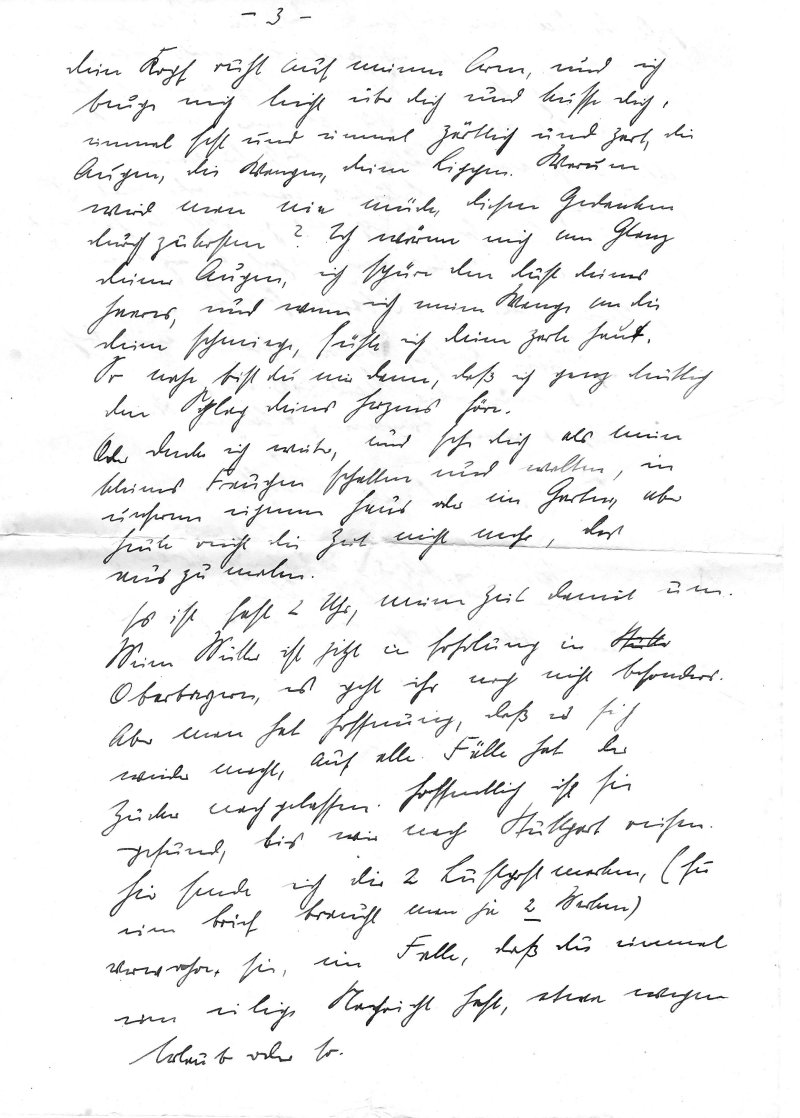 - 3 -
dein Kopf ruht auf meinem Arm, und ich
beuge mich leicht über dich und küsse dich,
einmal fest und einmal zärtlich und zart, die
Augen, die Wangen, deine Lippen. Warum
wird man nie müde, diesen Gedanken
durchzukosten? Ich wärme mich am Glanz
deiner Augen, ich spüre den Duft deines
Haares, und wenn ich meine Wange an die
deine schmiege, fühle ich deine zarte Haut.
So nahe bist du mir dann, daß ich ganz deutlich
den Schlag deines Herzens höre.
Oder denke ich weiter, und sehe dich als mein
kleines Frauchen schalten und walten, in
unserem eigenen Haus oder im Garten, aber
heute reicht die Zeit nicht mehr, das
auszumalen.
Es ist fast 2 Uhr, meine Zeit damit um.
Meine Mutter ist jetzt in Erholung in
Oberbayern, es geht ihr noch nicht besonders.
Aber man hat Hoffnung, daß es sich
wieder macht, auf alle Fälle hat der
Zucker nachgelassen. Hoffentlich ist sie
gesund, bis wir nach Stuttgart reisen.
Hier sende ich die 2 Luftpostmarken, (für
einen Brief braucht man ja 2 Marken)
verwahre sie, im Falle, daß du einmal
eine eilige Nachricht hast, etwa wegen
Urlaub oder so.